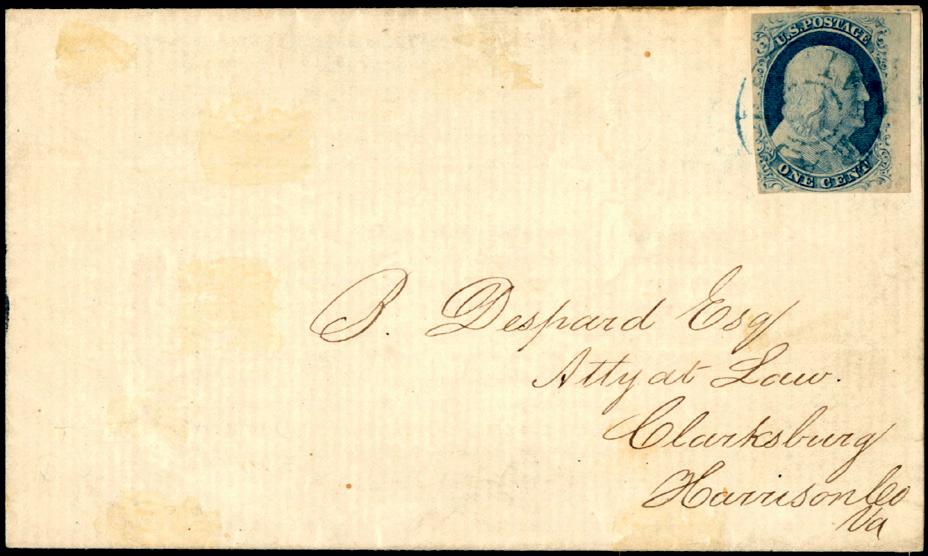 U.S. POSTAGE
ONE CENT
B. Despard Esq
Atty at Law.
Clarksburg
Harrison Co
Va